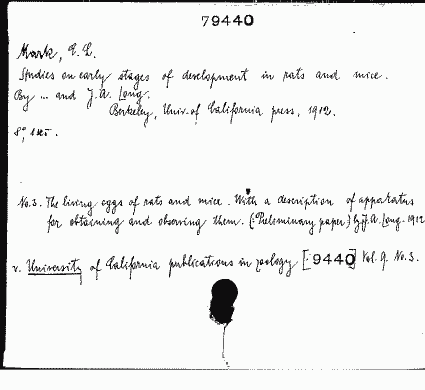 79440
Mark, E. L.
Studies on early stages of development in rats and mice.
By ... and J. A. Long.
Berkeley, Univ. of California press, 1912.
8°, text.
No. 3. The living eggs of rats and mice. With a description of apparatus
for obtaining and observing them. (Preliminary paper) by J. A. Long. 1912
v. University of California publications in zoology [9440] Vol. 9. No. 3.